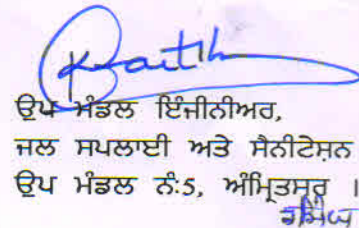 ਉਪ ਮੰਡਲ ਇੰਜੀਨੀਅਰ,
ਜਲ ਸਪਲਾਈ ਅਤੇ ਸੈਨੀਟੇਸ਼ਨ
ਉਪ ਮੰਡਲ ਨੰ:5, ਅੰਮ੍ਰਿਤਸਰ ।